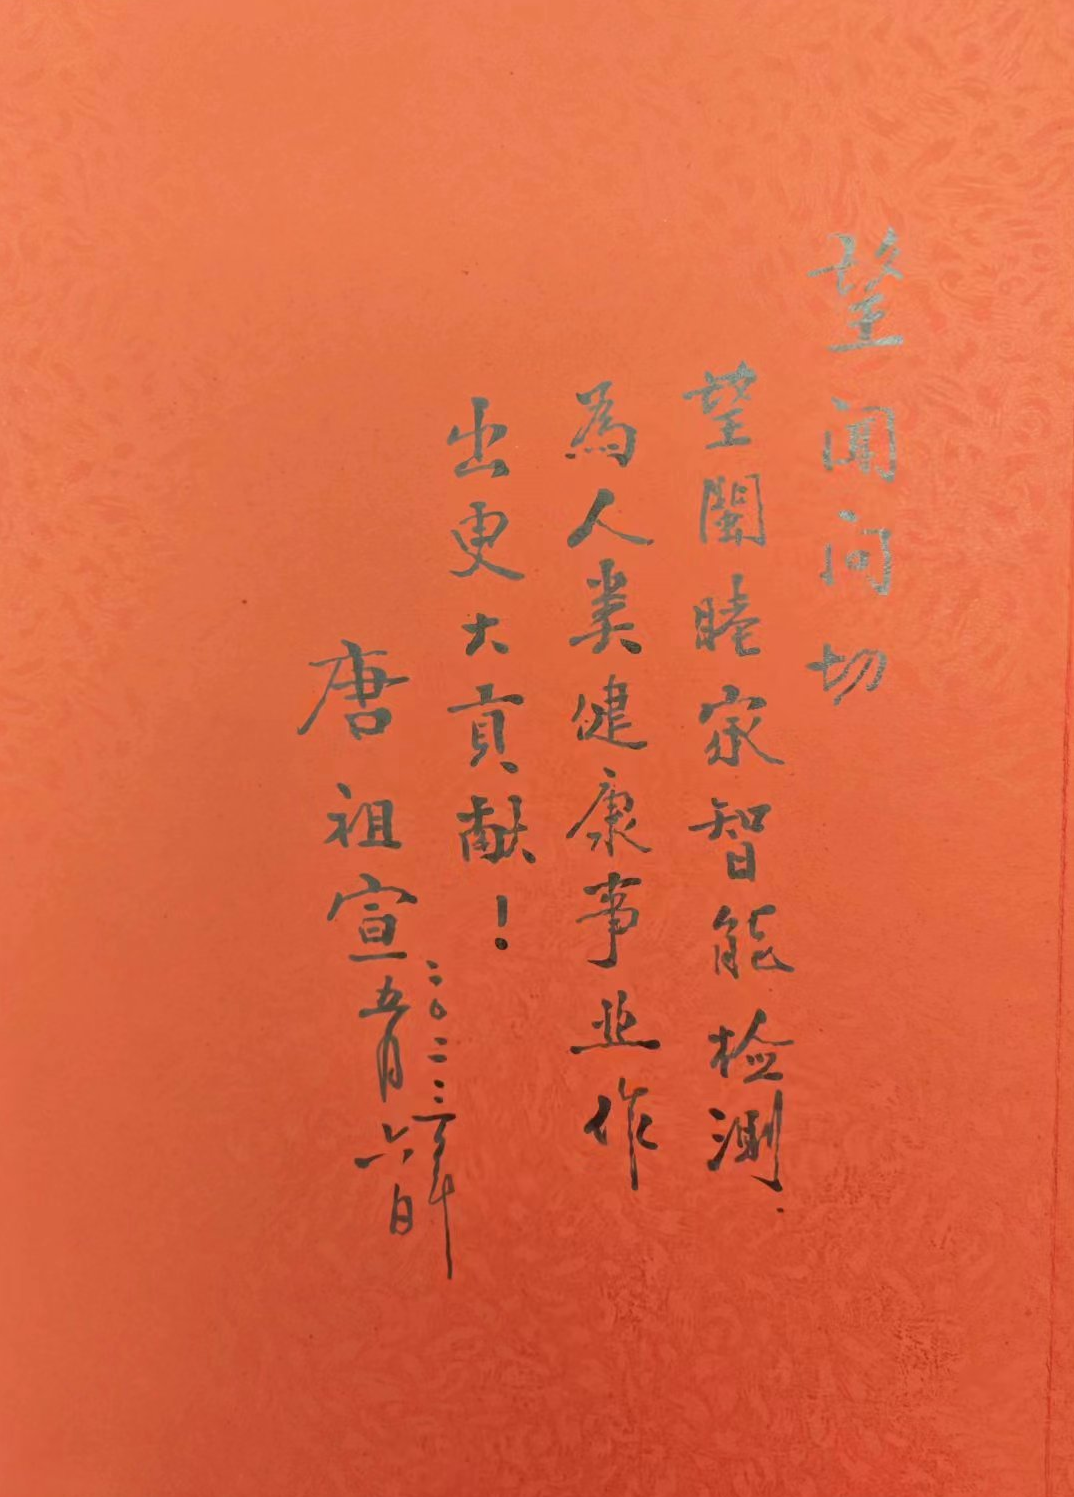 望闻问切
望闻睦家智能检测.
為人类健康事业作
出更大貢献！
唐祖宣
二〇二三年
五月六日